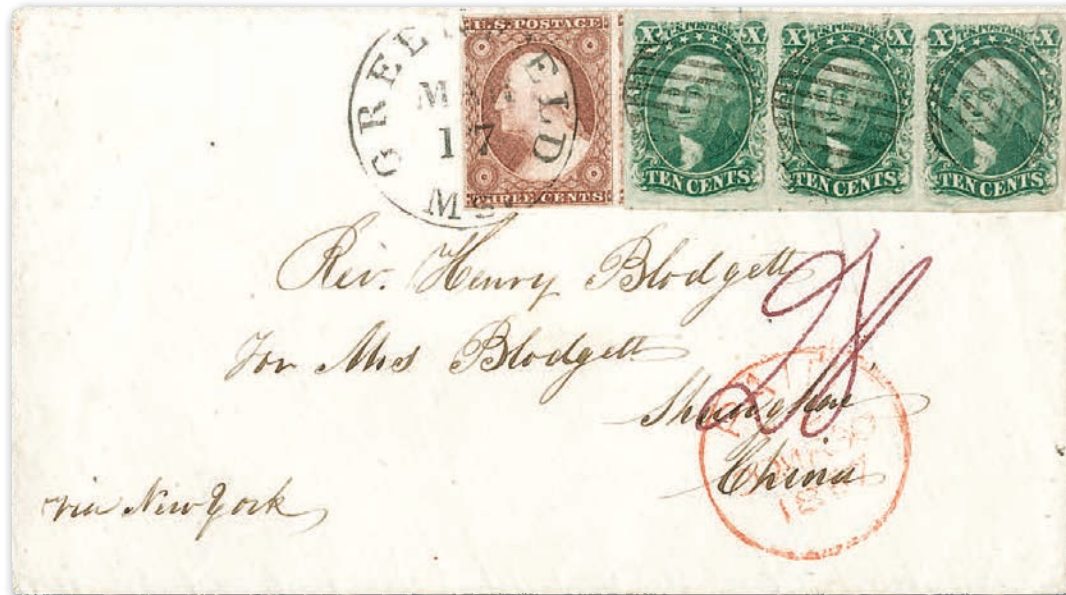 U.S. POSTAGE
THREE CENTS
X U.S. POSTAGE X
TEN CENTS
X U.S. POSTAGE X
TEN CENTS
X U.S. POSTAGE X
TEN CENTS
GREENFIELD
17
Rev. Henry Blodgett
For Mrs Blodgett
Shanghai
China
28
via New York